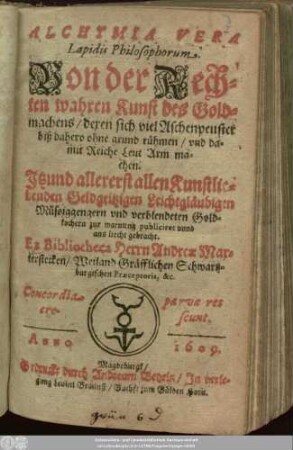 ALCHYMIA VERA
Lapidis Philosophorum.
Von der Rech-
ten wahren Kunst des Gold-
machens / deren sich viel Aschenpeuster
biß dahero ohne grund rühmen / vnd da-
mit Reiche Leut Arm ma-
chen.
Itzund allererst allen Kunstlie-
benden Geldgeitzigen Leichtgläubigen
vnd verblendeten Gold-
köchern zur warnung publiciret vnnd
ans liecht gebracht.
Ex Bibliotheca Herrn Andreæ
Weiland Gräfflichen Schwartz-
burgischen Præceptoris, &c.
Concordia parvæ res
cre- scunt.
Anno 1609.
Magdeburgk /
Gedruckt durch / In verle-
gung